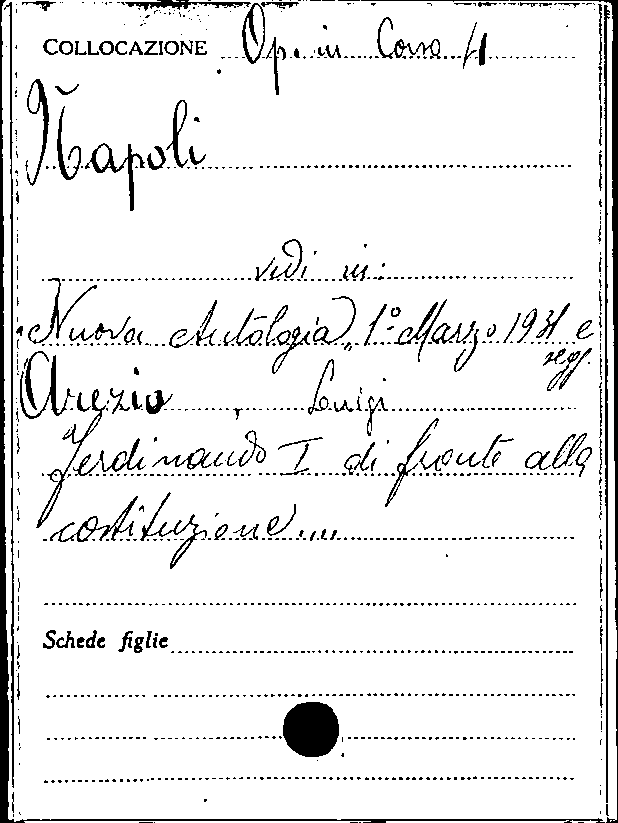 COLLOCAZIONE Op. in Corso 41
Napoli
vedi in:
"Nuova Antologia", 1° Marzo 1931 e segg.
Arezio, Luigi
Ferdinando I di fronte alla
costituzione....
Schede figlie